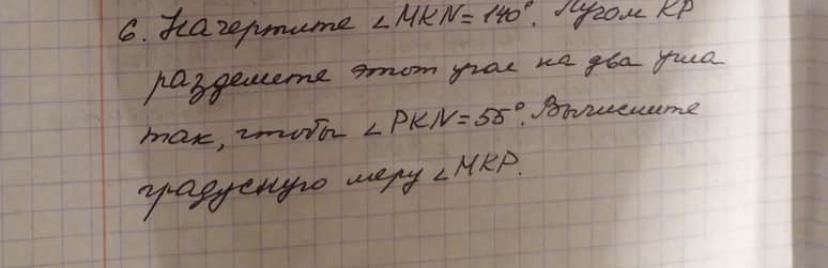 6. Начертите ∠MKN = 140°. Лучом KP
разделите этот угол на два угла
так, чтобы ∠PKN = 55°. Вычислите
градусную меру ∠MKP.